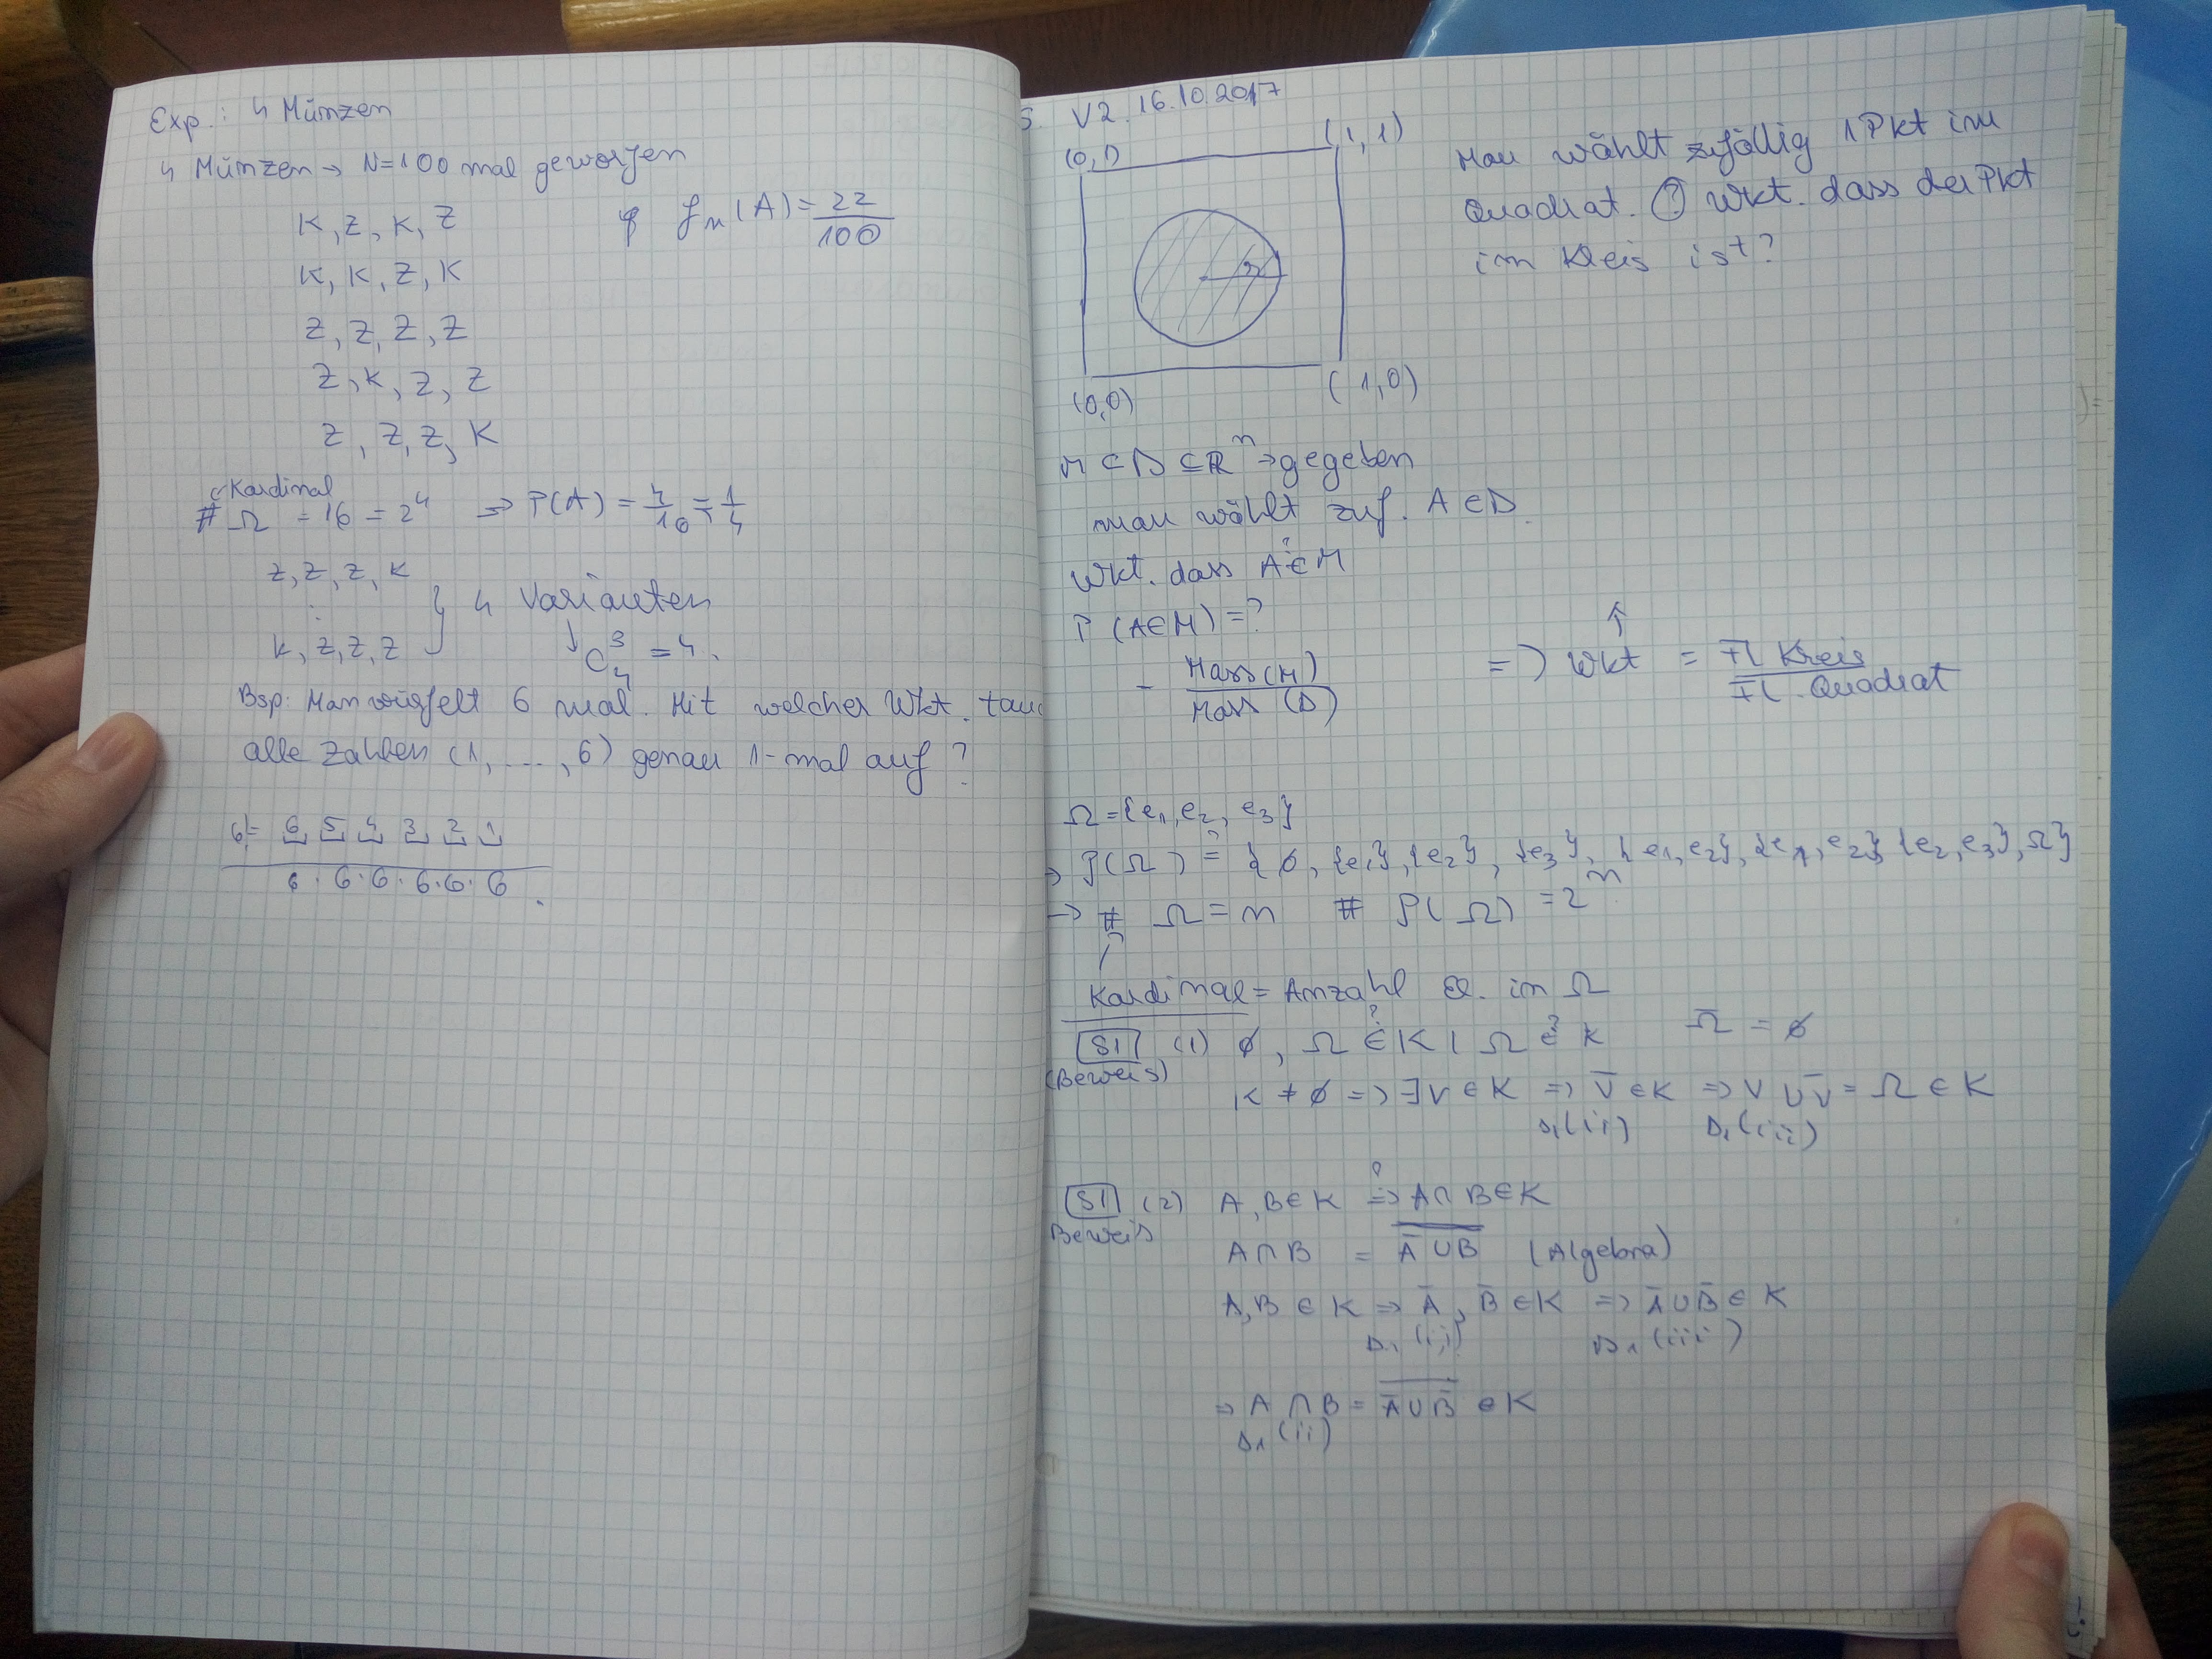 Exp.: 4 Münzen
4 Münzen → N=100 mal geworfen
K, Z, K, Z
fn(A) = 22/100
K, K, Z, K
Z, Z, Z, Z
Z, K, Z, Z
Z, Z, Z, K
Kardinal
# Ω = 16 = 2^4 ⇒ P(A) = 4/16 = 1/4
Z, Z, Z, K
⋮ } 4 Varianten
K, Z, Z, Z ↓ C_4^3 = 4.
Bsp: Man würfelt 6 mal. Mit welcher Wkt. tauc
alle Zahlen (1, ..., 6) genau 1-mal auf?
6! = 6 5 4 3 2 1
6·6·6·6·6·6.
V2. 16.10.2017
(0,1) (1,1)
r
(0,0) (1,0)
Man wählt zufällig 1 Pkt im
Quadrat. ? Wkt. dass der Pkt
im Kreis ist?
M ⊂ D ⊆ ℝ^n → gegeben
man wählt zuf. A ∈ D.
Wkt. dass A ∈? M
P (A∈M) = ?
= Mass(M)/Mass(D)
↑
=> Wkt = Fl Kreis/Fl. Quadrat
Ω = {e1, e2, e3}
→ P(Ω) =? {∅, {e1}, {e2}, {e3}, {e1, e2}, {e1, e2}, {e2, e3}, Ω}
→ # Ω = n # P(Ω) = 2^n
Kardinal = Anzahl El. in Ω
S1 (1) ∅, Ω ∈? K | Ω ∈? K Ω̅ = ∅
(Beweis)
K ≠ ∅ => ∃ V ∈ K => V̅ ∈ K => V ∪ V̅ = Ω ∈ K
D1(ii) D1(iii)
S1 (2) A, B ∈ K =>? A∩B ∈ K
Beweis
A∩B = \overline{A̅ ∪ B̅} (Algebra)
A, B ∈ K => A̅, B̅ ∈ K => A̅ ∪ B̅ ∈ K
D1 (ii) D1 (iii)
=> A ∩ B = \overline{A̅ ∪ B̅} ∈ K
D1 (ii)